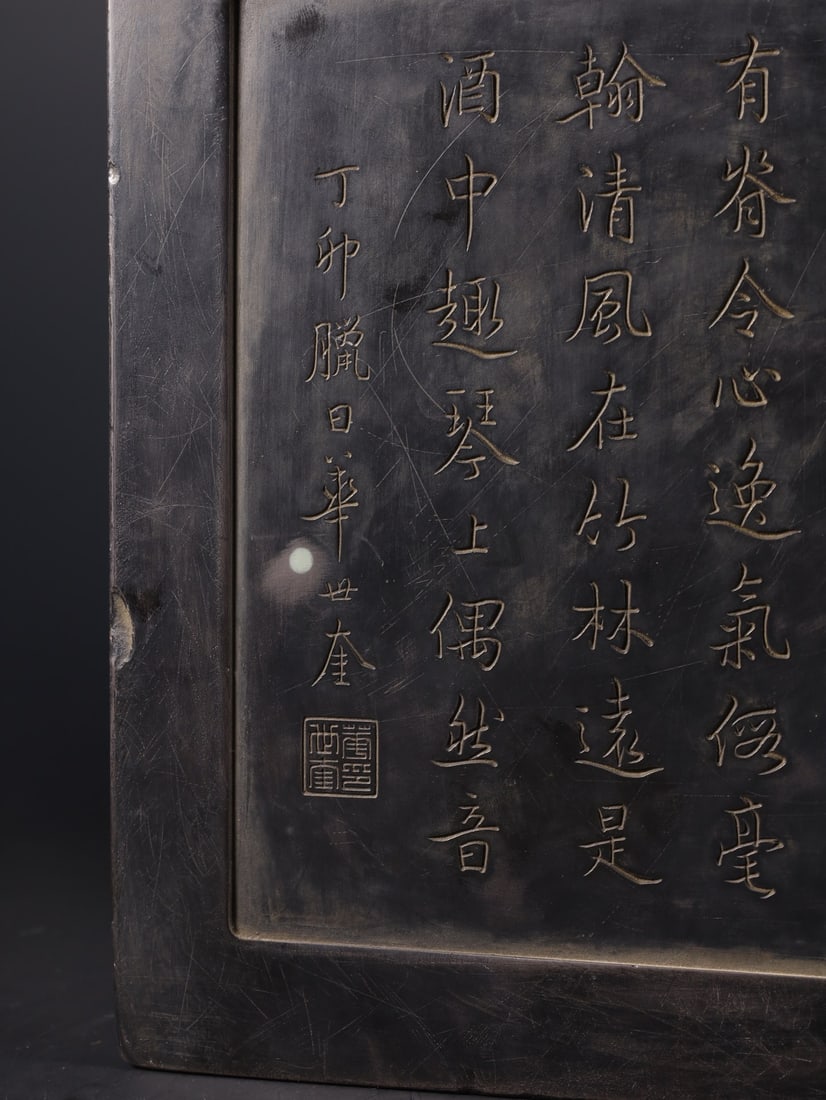 有脊令心逸氣假毫
翰清風在竹林遠是
酒中趣琴上偶然音
丁卯臘日華世奎
華印世奎